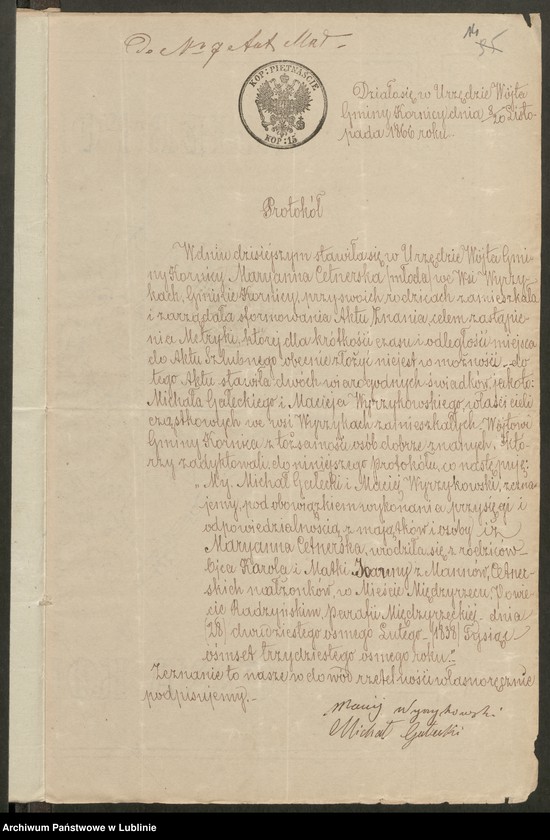 Do Nro 9 Akt Mał.
No 35
KOP: PIETNAŚCIE
KOP: 15
Działo się w Urzędzie Wójta
Gminy Kornicy dnia 8/20 Listo-
pada 1866 roku.
Protokół
W dniu dzisiejszym stawiła się w Urzędzie Wójta Gmi-
ny Kornicy Maryanna Cetnerska (młoda) we Wsi Wyrzy-
kach, Gminie Kornicy, przy swoich rodzicach zamieszkała
i zarządała sformowania Aktu Znania, celem zastąpie-
nia Metryki, której dla krótkości czasu i odległości miejsca
do Aktu Szlubnego obecnie złożyć niejest w możności – do
tego Aktu stawiła dwóch wiarogodnych świadków, jako to:
Michała Gałeckiego i Macieja Wyrzykowskiego, właścicieli
cząstkowych we wsi Wyrzykach zamieszkałych, Wójtowi
Gminy Kornica z tożsamości osób dobrze znanych. Któ-
rzy zadyktowali do niniejszego protokółu, co następuje:
„My, Michał Gałecki i Maciej Wyrzykowski, zezna-
jemy, pod obowiązkiem wykonania przysięgi i
odpowiedzialnością z majątków i osoby iż
Maryanna Cetnerska, urodziła się z rodziców
Ojca Karola i Matki Joanny z Mannów, Cetner-
skich małżonków, w Mieście Międzyrzecu, Powie-
cie Radzyńskim, Parafii Międzyrzeckiej – dnia
(28) dwudziestego ósmego Lutego – (1838) Tysiąc
ośmset trzydziestego osmego roku."
Zeznanie to nasze w dowód rzetelności własnoręcznie
podpisujemy. –
Maciej Wyrzykowski
Michał Gałecki
Archiwum Państwowe w Lublinie